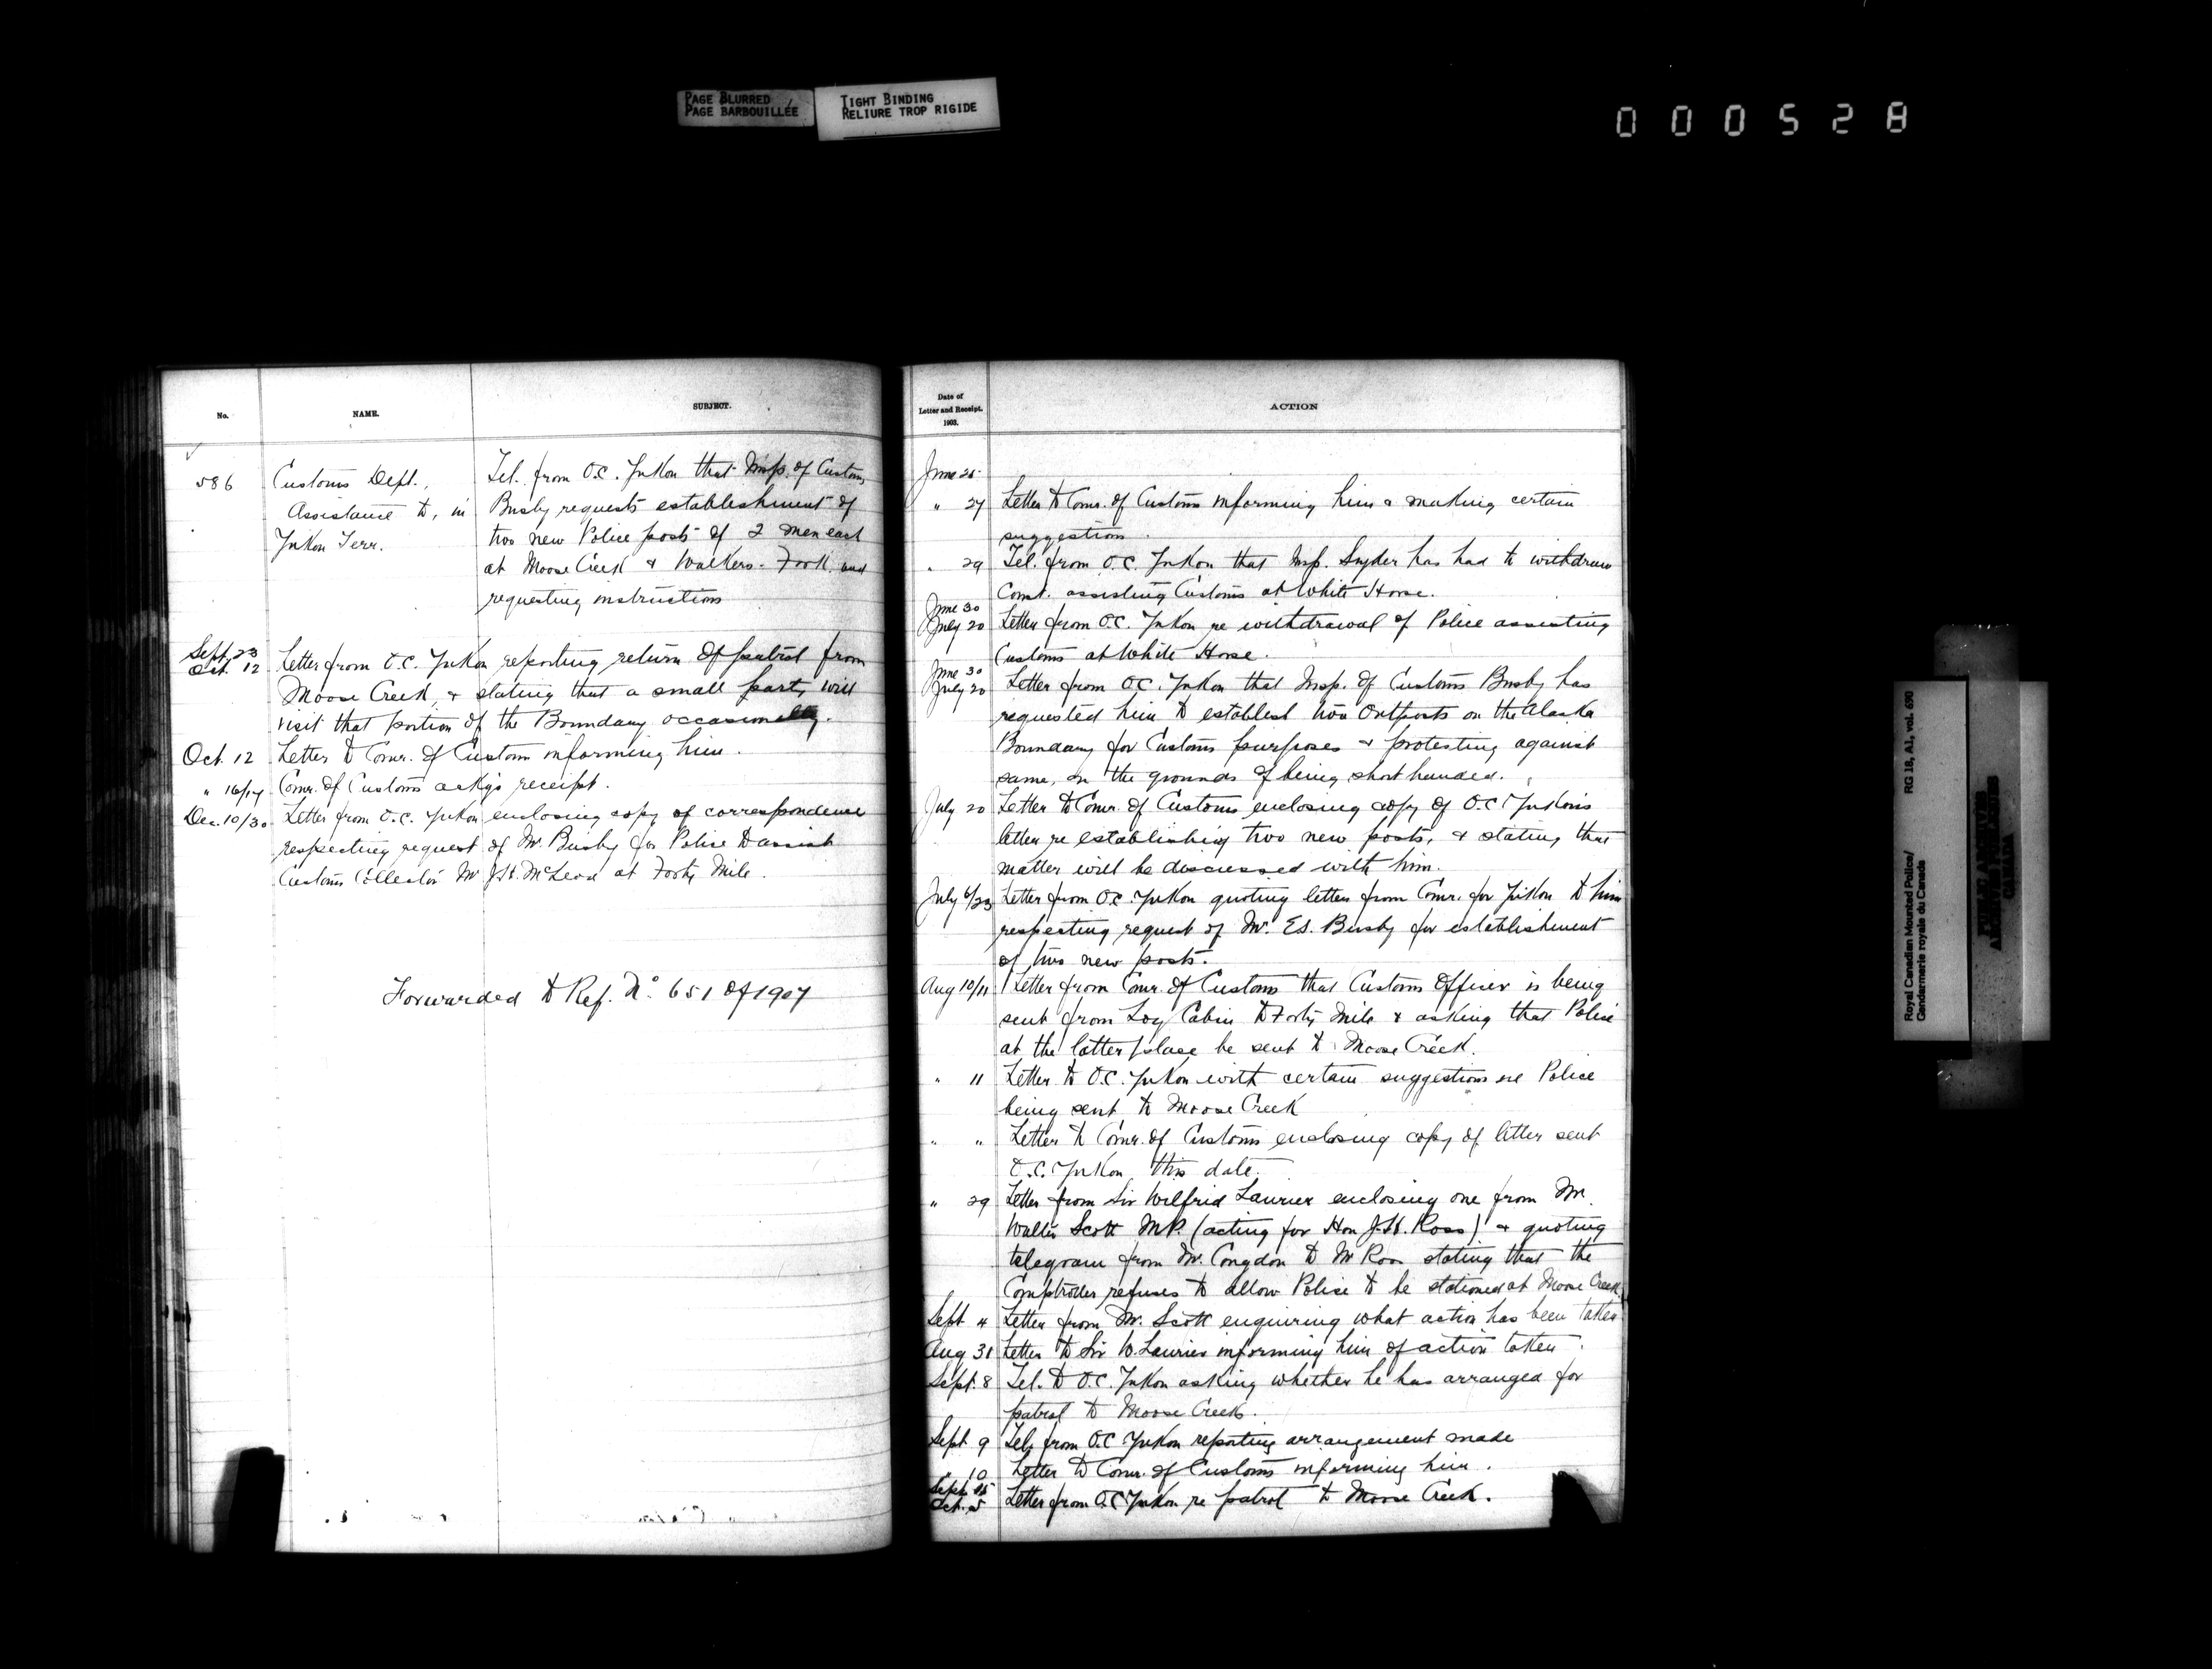 PAGE BLURRED
PAGE BARBOUILLÉE
TIGHT BINDING
RELIURE TROP RIGIDE
000528
No.
NAME.
SUBJECT.
586
Customs Dept.,
Assistance to, in
Yukon Terr.
Tel. from O.C. Yukon that Insp. of Customs
Busby requests establishment of
two new Police posts of 2 men each
at Moose Creek & Walkers Fork and
requesting instructions
Sept. 23
Oct. 12 Letter from O.C. Yukon reporting return of patrol from
Moose Creek, & stating that a small party will
visit that portion of the Boundary occasionally.
Oct. 12 Letter to Comr. of Customs informing him.
" 16/17 Comr. of Customs ackg's receipt.
Dec. 10/30 Letter from O.C. Yukon enclosing copy of correspondence
respecting request of Mr. Busby for Police to assist
Customs Collector Mr J.H. McLeod at Forty Mile.
Forwarded to Ref. No. 651 of 1907
Date of
Letter and Receipt.
1903.
ACTION
June 25
" 27 Letter to Comr. of Customs informing him & making certain
suggestions.
" 29 Tel. from O.C. Yukon that Insp. Snyder has had to withdraw
Const. assisting Customs at White Horse.
June 30
July 20 Letter from O.C. Yukon re withdrawal of Police assisting
Customs at White Horse.
June 30
July 20 Letter from O.C. Yukon that Insp. of Customs Busby has
requested him to establish two Outposts on the Alaska
Boundary for Customs purposes & protesting against
same, on the grounds of being short handed.
July 20 Letter to Comr. of Customs enclosing copy of O.C. Yukon's
letter re establishing two new posts, & stating that
matter will be discussed with him.
July 6/23 Letter from O.C. Yukon quoting letter from Comr. for Yukon to him
respecting request of Mr. E.S. Busby for establishment
of two new posts.
Aug 10/11 Letter from Comr. of Customs that Customs Officer is being
sent from Log Cabin to Forty Mile & asking that Police
at the latter place be sent to Moose Creek.
" 11 Letter to O.C. Yukon with certain suggestions re Police
being sent to Moose Creek
" " Letter to Comr. of Customs enclosing copy of letter sent
O.C. Yukon this date.
" 29 Letter from Sir Wilfrid Laurier enclosing one from Mr.
Walter Scott M.P. (acting for Hon J.H. Ross) & quoting
telegram from Mr. Congdon to Mr Ross stating that the
Comptroller refuses to allow Police to be stationed at Moose Creek.
Sept 4 Letter from Mr. Scott enquiring what action has been taken
Aug 31 Letter to Sir W. Laurier informing him of action taken.
Sept. 8 Tel. to O.C. Yukon asking whether he has arranged for
patrol to Moose Creek.
Sept 9 Tel. from O.C Yukon reporting arrangement made
" 10 Letter to Comr. of Customs informing him.
Sept. 15
Oct. 5 Letter from O.C Yukon re patrol to Moose Creek.
Royal Canadian Mounted Police/
Gendarmerie royale du Canada
RG 18, A1, vol. 690
PUBLIC ARCHIVES
ARCHIVES PUBLIQUES
CANADA